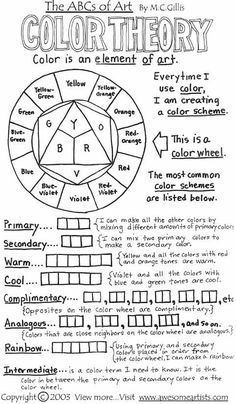 The ABCs of Art By M.C.Gillis
COLOR THEORY
Color is an element of art.
Everytime I
use color,
I am creating
a color scheme.
This is a
color wheel.
The most common
color schemes
are listed below.
Yellow
Yellow-
Orange
Orange
Red-
Orange
Red
Red-
Violet
Violet
Blue-
Violet
Blue
Blue-
Green
Green
Yellow-
Green
G
Y
O
B
R
V
Primary.... {I can make all the other colors by
mixing different amounts of primary colors.
Secondary.... {I can mix two primary colors to
make a secondary color.
Warm.... {Yellow and all the colors with red
and orange tones are warm.
Cool.... {Violet and all the colors with
blue and green tones are cool.
Complimentary.... , , , , etc,
{Opposites on the color wheel are complimentary.}
Analogous... , , , and so on.
{Colors that are close neighbors on the color wheel are analogous.}
Rainbow... {Using primary and secondary
colors placed in order from
the color wheel, I can make a rainbow.
Intermediate...is a color term I need to know. It is the
color in between the primary and secondary colors on
the color wheel.
Copyright © 2003 View more...Visit www.awesomeartists.com